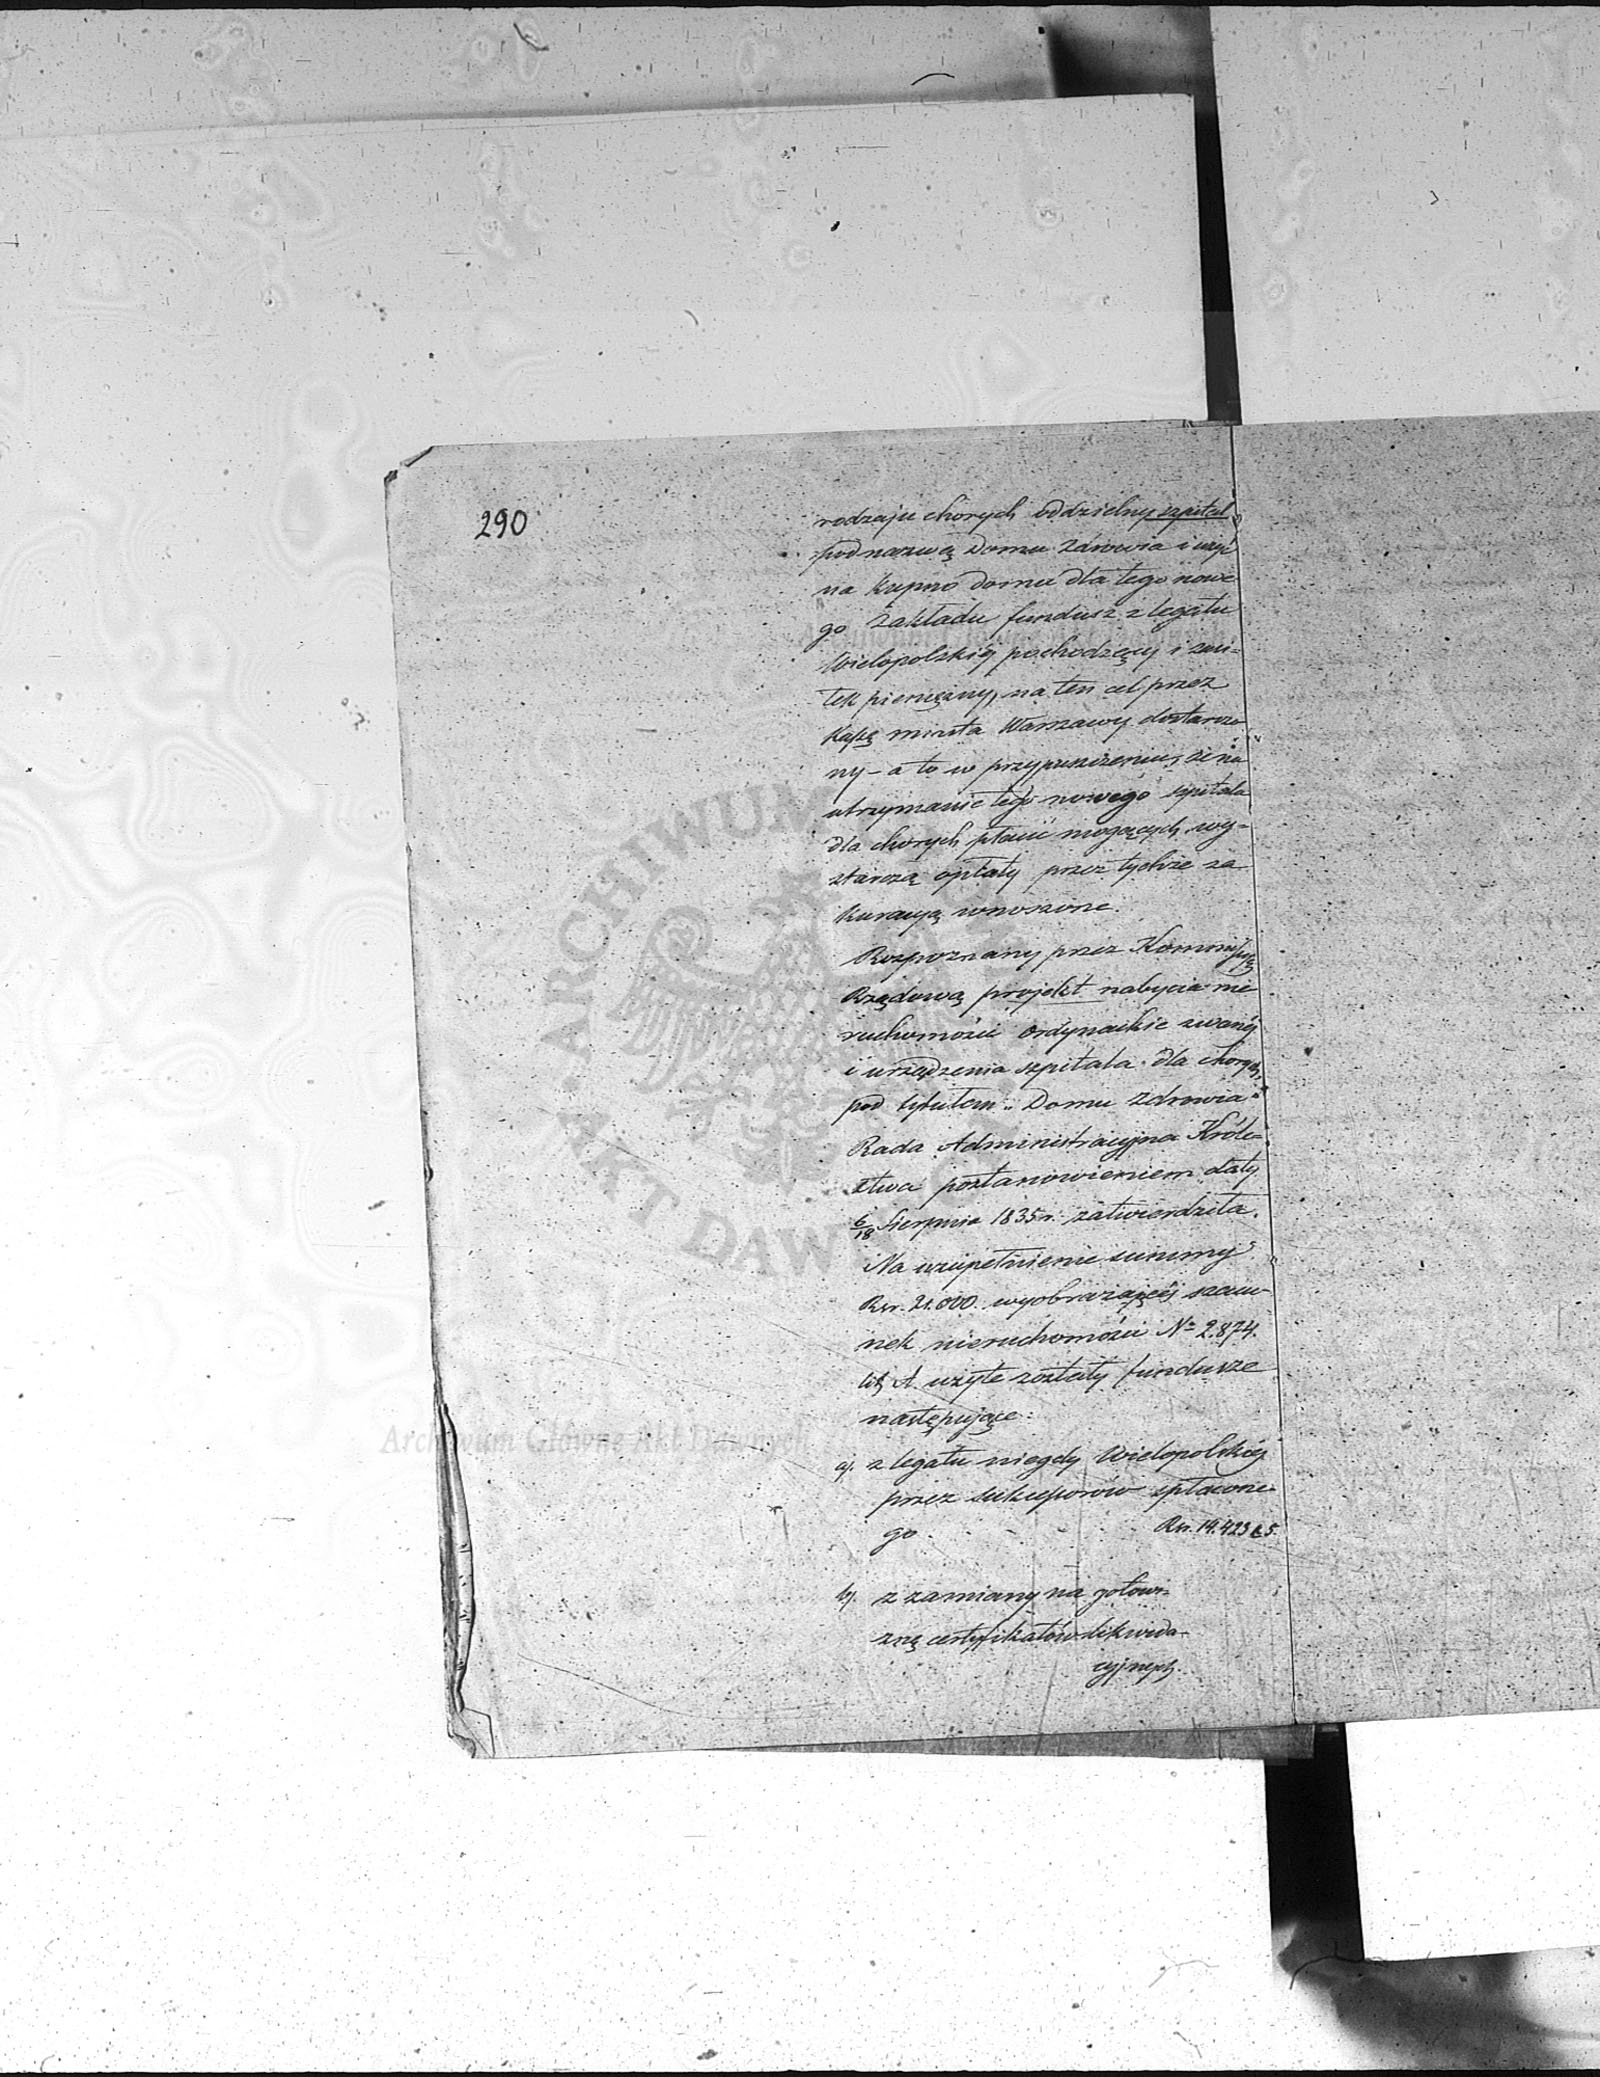 290
rodzaju chorych oddzielny szpital
pod nazwą Domu Zdrowia i użyć
na kupno domu dla tego nowe
go zakładu fundusz z legatu
Wielopolskiéj pochodzący i zasi-
łek pieniężny, na ten cel przez
Kassę miasta Warszawy dostarczo
ny – a to w przypuszczeniu, że na
utrzymanie tego nowego szpitala
dla chorych płacić mogących wy-
starczą opłaty przez tychże za
kuracyą wnoszone.
Rozpoznany przez Kommissyą
Rządową projekt nabycia nie
ruchomości Ordynackie zwanéj
i urządzenia szpitala dla chorych,
pod tytułem „Domu Zdrowia"
Rada Administracyjna Króle-
stwa postanowieniem daty
6/18 Sierpnia 1835 r. zatwierdziła.
Na uzupełnienie summy
Rsr. 21.000 wyobrażającéj szacu-
nek nieruchomości № 2.874.
lit. A. użyte zostały fundusze
następujące:
a). z legatu niegdy Wielopolskiéj
przez sukcessorów spłacone-
go Rsr. 14.423 k 5.
b). z zamiany na gotowi-
znę certyfikatów likwida-
cyjnych.
ARCHIWUM
AKT DAW
Archiwum Główne Akt Dawnych